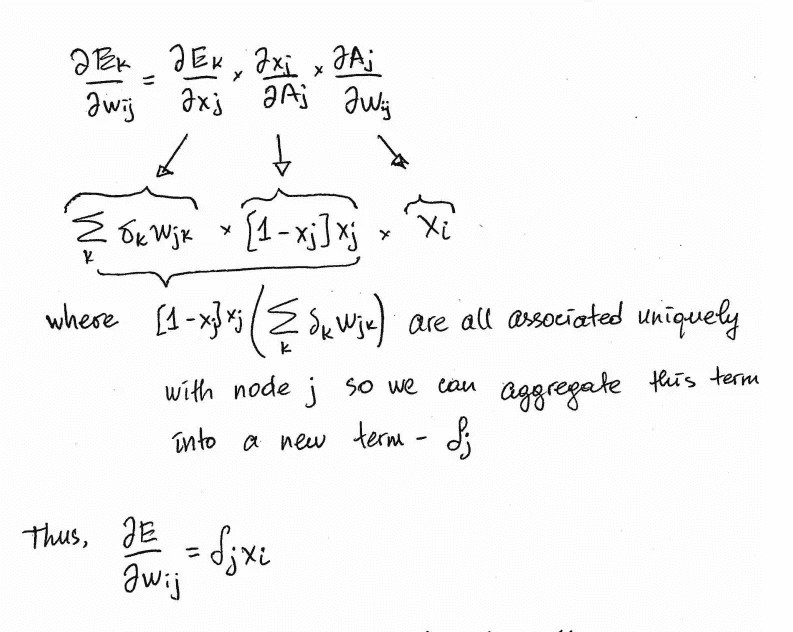 ∂E_k/∂w_ij = ∂E_k/∂x_j × ∂x_j/∂A_j × ∂A_j/∂w_ij
∑_k δ_k w_jk × [1-x_j] x_j × x_i
where [1-x_j] x_j (∑_k δ_k w_jk) are all associated uniquely
with node j so we can aggregate this term
into a new term - δ_j
Thus, ∂E/∂w_ij = δ_j x_i